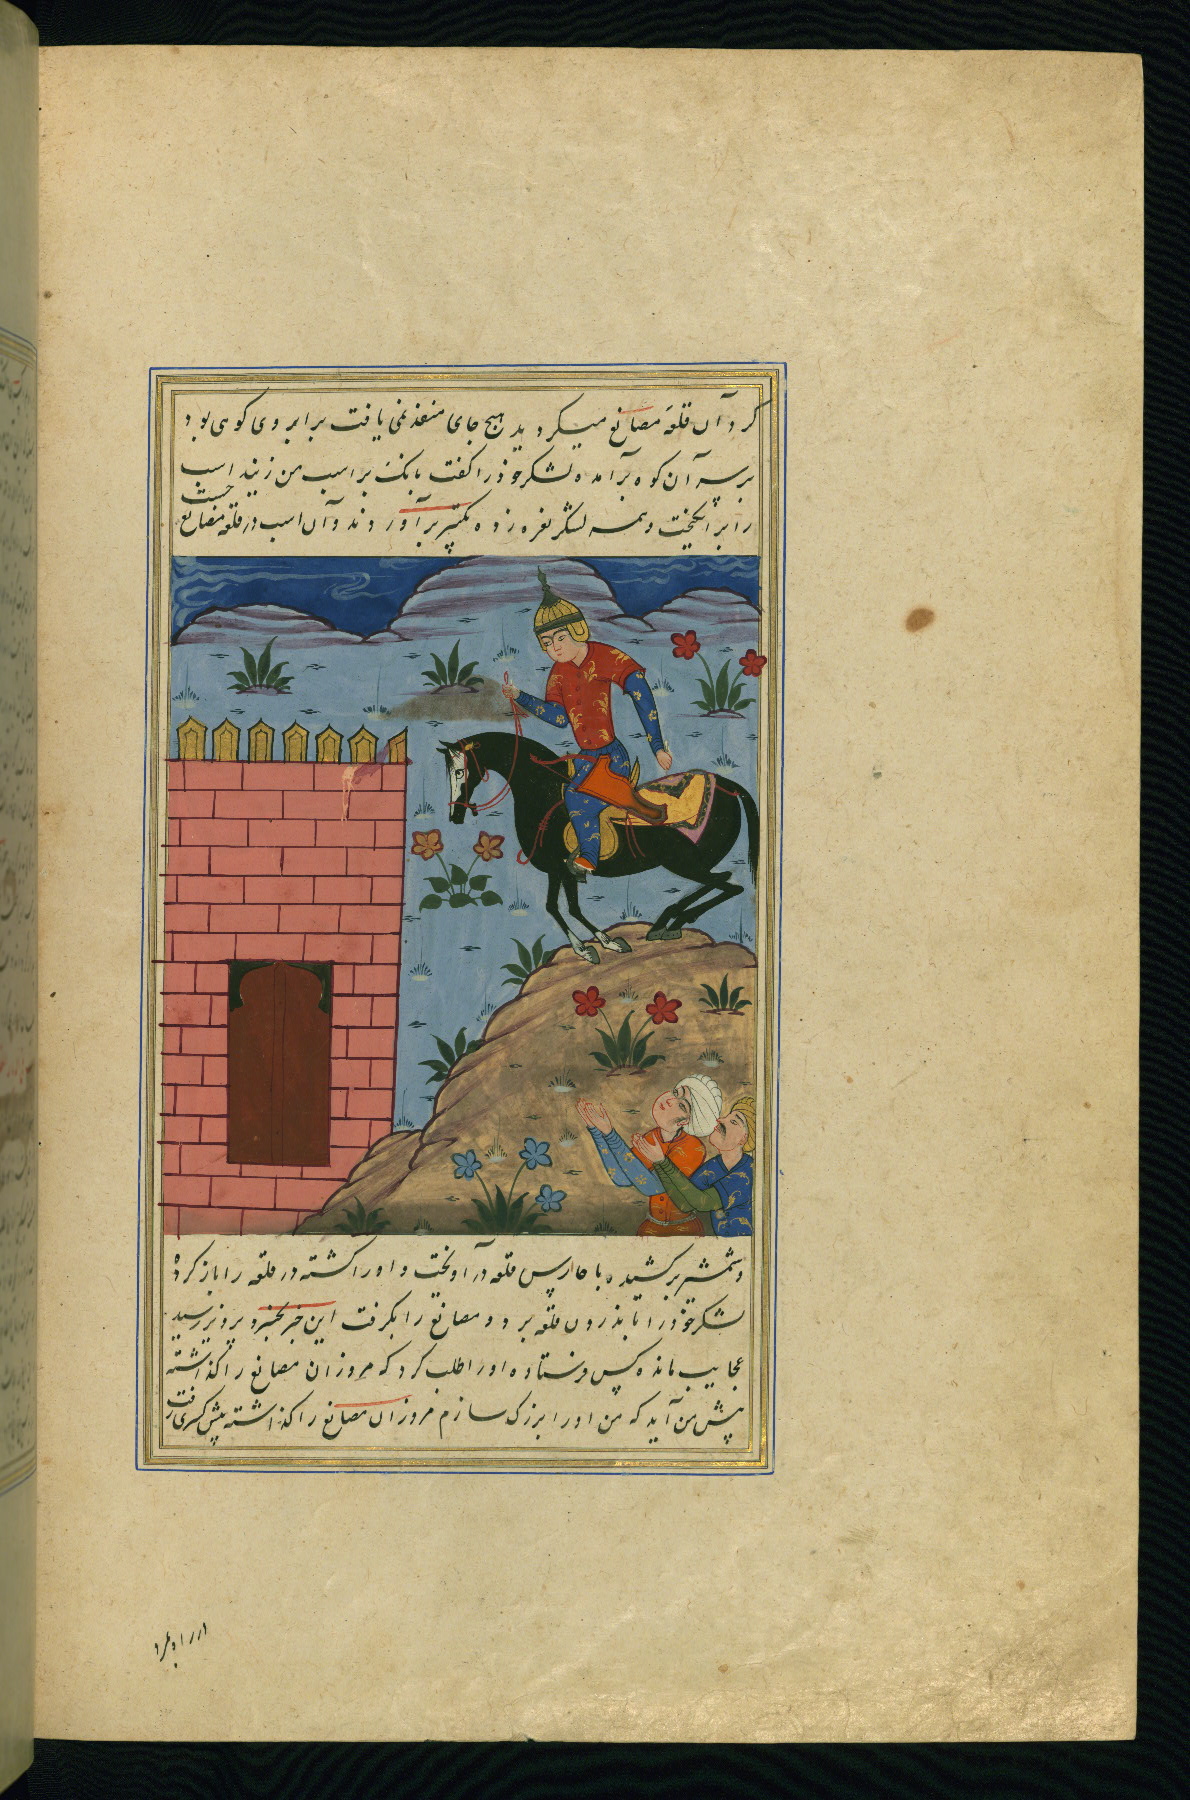 کرد آن قلعه مصانع میکردید هیچ جای منفذ نمی یافت برابر وی کوهی بود
بر سر آن کوه برآمده لشکر خوذ را کفت بانک بر اسب من زنید اسب
را برانکیخت و همه لشکر نعره زده تکبیر برآوردند و آن اسب در قلعه مصانع جست
و شمشیر بر کشیده با حارس قلعه درآویخت و او را کشته در قلعه را باز کرده
لشکر خوذ را تا بذرون قلعه برد و مصانع را بکرفت این خبر بخسرو پرویز رسید
عجایب مانده کس فرستاده او را طلب کرد که مروزان مصانع را کذاشته
پیش من آید که من او را بزرک سازم مروزان مصانع را کذاشته پیش کسری رفت